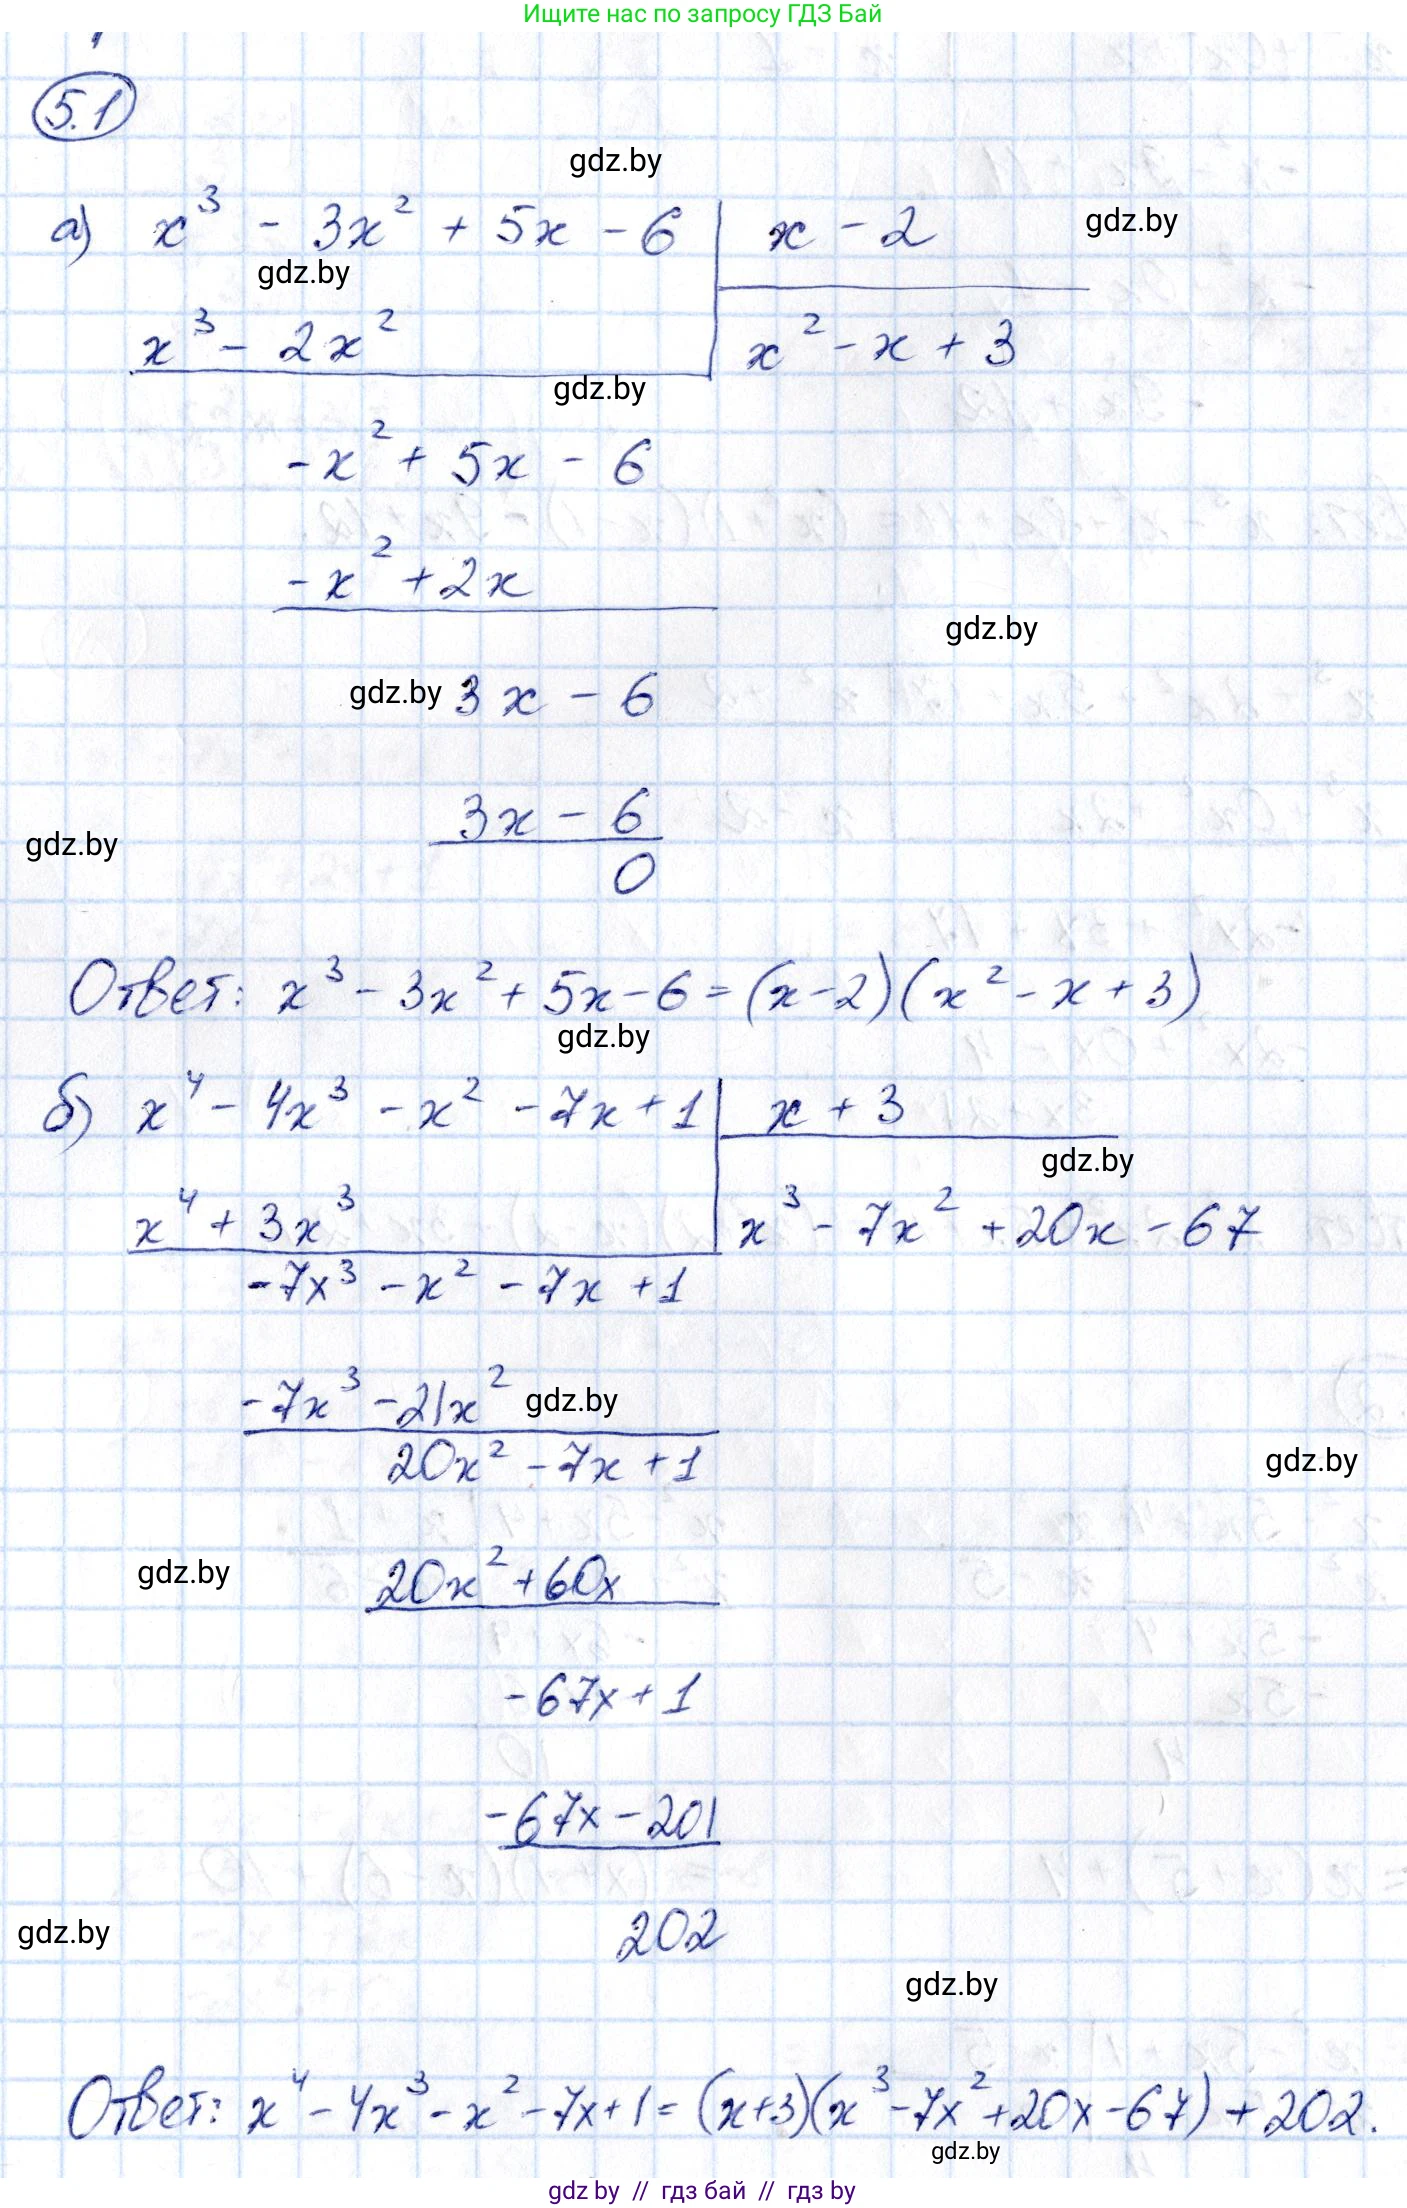 Ищите нас по запросу ГДЗ Бай
5.1
gdz.by
а) x³ - 3x² + 5x - 6 | x - 2
gdz.by
gdz.by
x³ - 2x² | x² - x + 3
gdz.by
-x² + 5x - 6
-x² + 2x
gdz.by
gdz.by 3x - 6
3x - 6
gdz.by
0
Ответ: x³ - 3x² + 5x - 6 = (x - 2)(x² - x + 3)
gdz.by
б) x⁴ - 4x³ - x² - 7x + 1 | x + 3
gdz.by
x⁴ + 3x³ | x³ - 7x² + 20x - 67
-7x³ - x² - 7x + 1
-7x³ - 21x² gdz.by
20x² - 7x + 1
gdz.by
gdz.by 20x² + 60x
-67x + 1
-67x - 201
202
gdz.by
gdz.by
Ответ: x⁴ - 4x³ - x² - 7x + 1 = (x+3)(x³ - 7x² + 20x - 67) + 202.
gdz.by
gdz by // гдз бай // гдз by